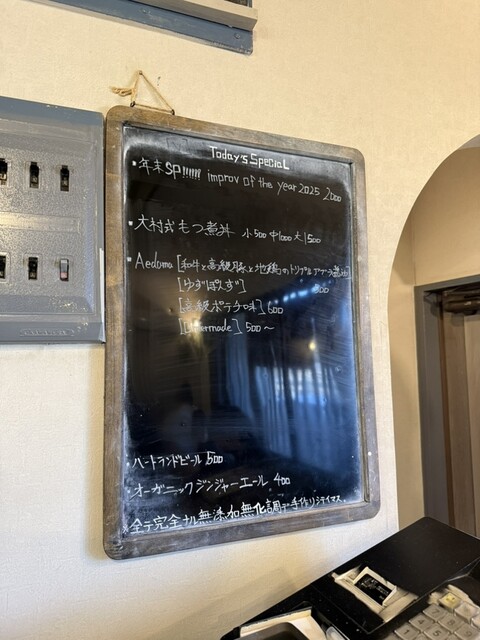 Today's Special
・年末SP!!!!!! improv of the year 2025 2000
・大村式もつ煮丼 小500 中1000 大1500
・Aedama [和牛と高級豚と地鶏のトリプルアブラ醤油]
[ゆずぽんず] 300
[高級ポテチ味] 600
made] 500〜
・ハートランドビール 500
・オーガニックジンジャーエール 400
※全テ完全ナル無添加無化調デ手作リシテイマス。